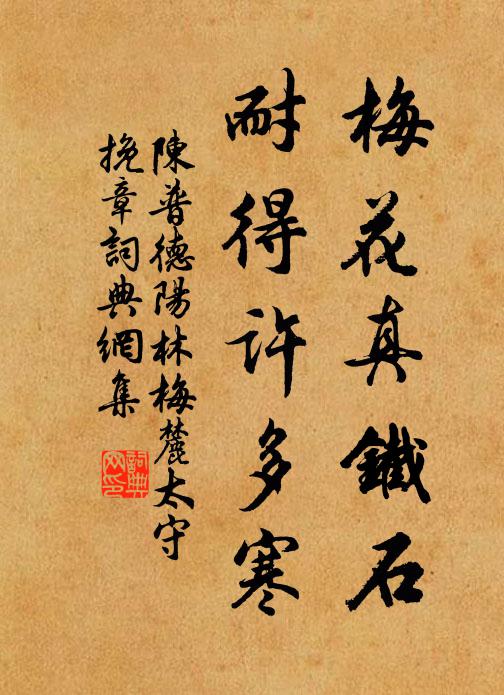 梅花真鐵石
耐得許多寒
陳普德陽林梅麓太守
挽章詞典網集
詞典
网印